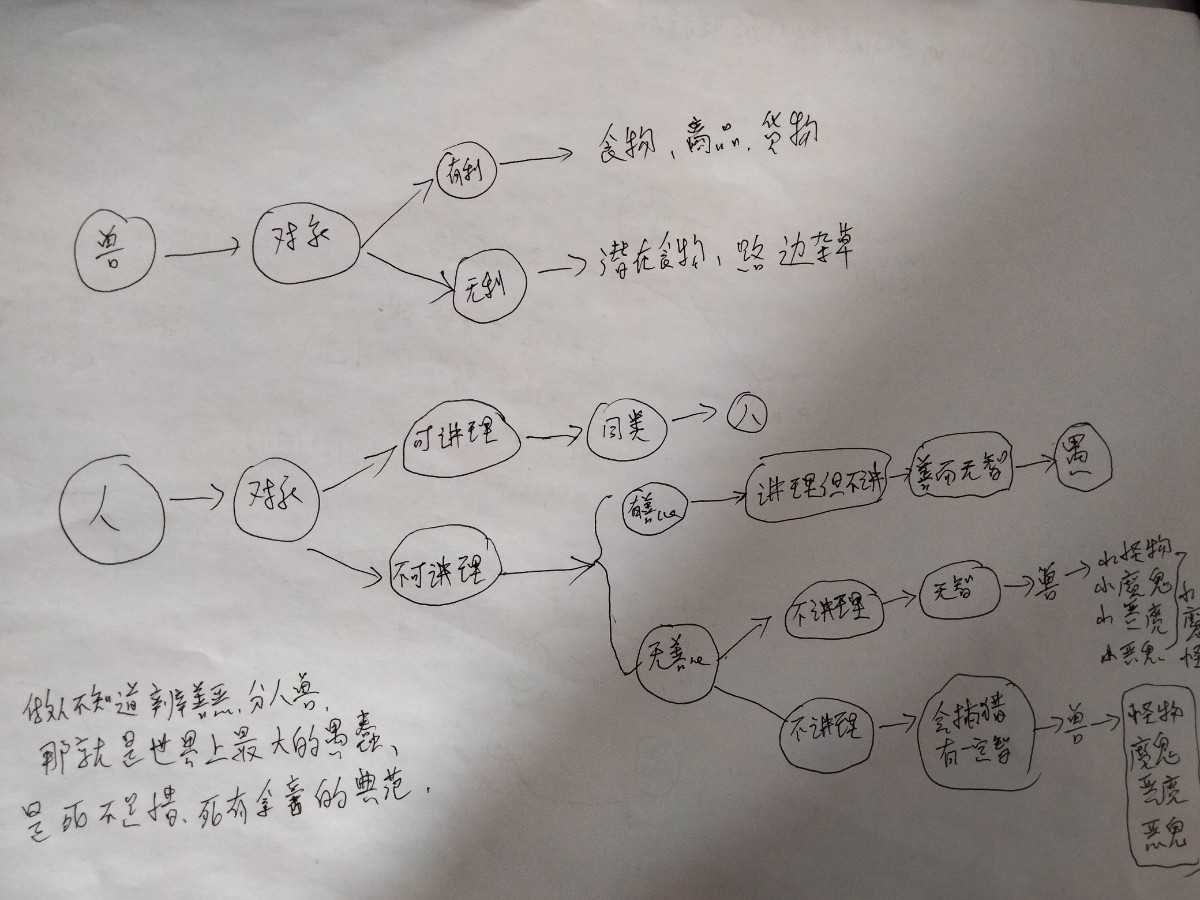 兽
对象
有利
食物、商品、货物
无利
潜在食物、路边杂草
人
对象
可讲理
同类
人
不可讲理
有善心
讲理但不讲
善而无智
愚
无善心
不讲理
无智
兽
小怪物
小魔鬼
小恶魔
小恶鬼
小魔怪
不讲理
会捕猎
有一定智
兽
怪物
魔鬼
恶魔
恶鬼
做人不知道辨善恶、分人兽、
那就是世界上最大的愚蠢、
是死不足惜、死有余辜的典范.